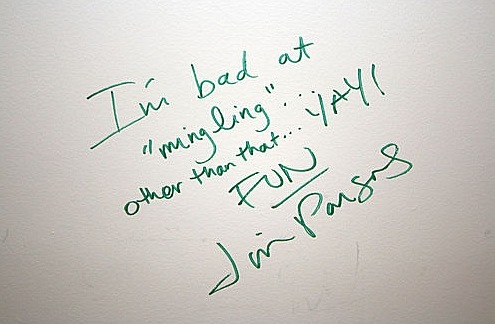 I'm bad at
"mingling"...
other than that... YAY!
FUN
Jim Parsons